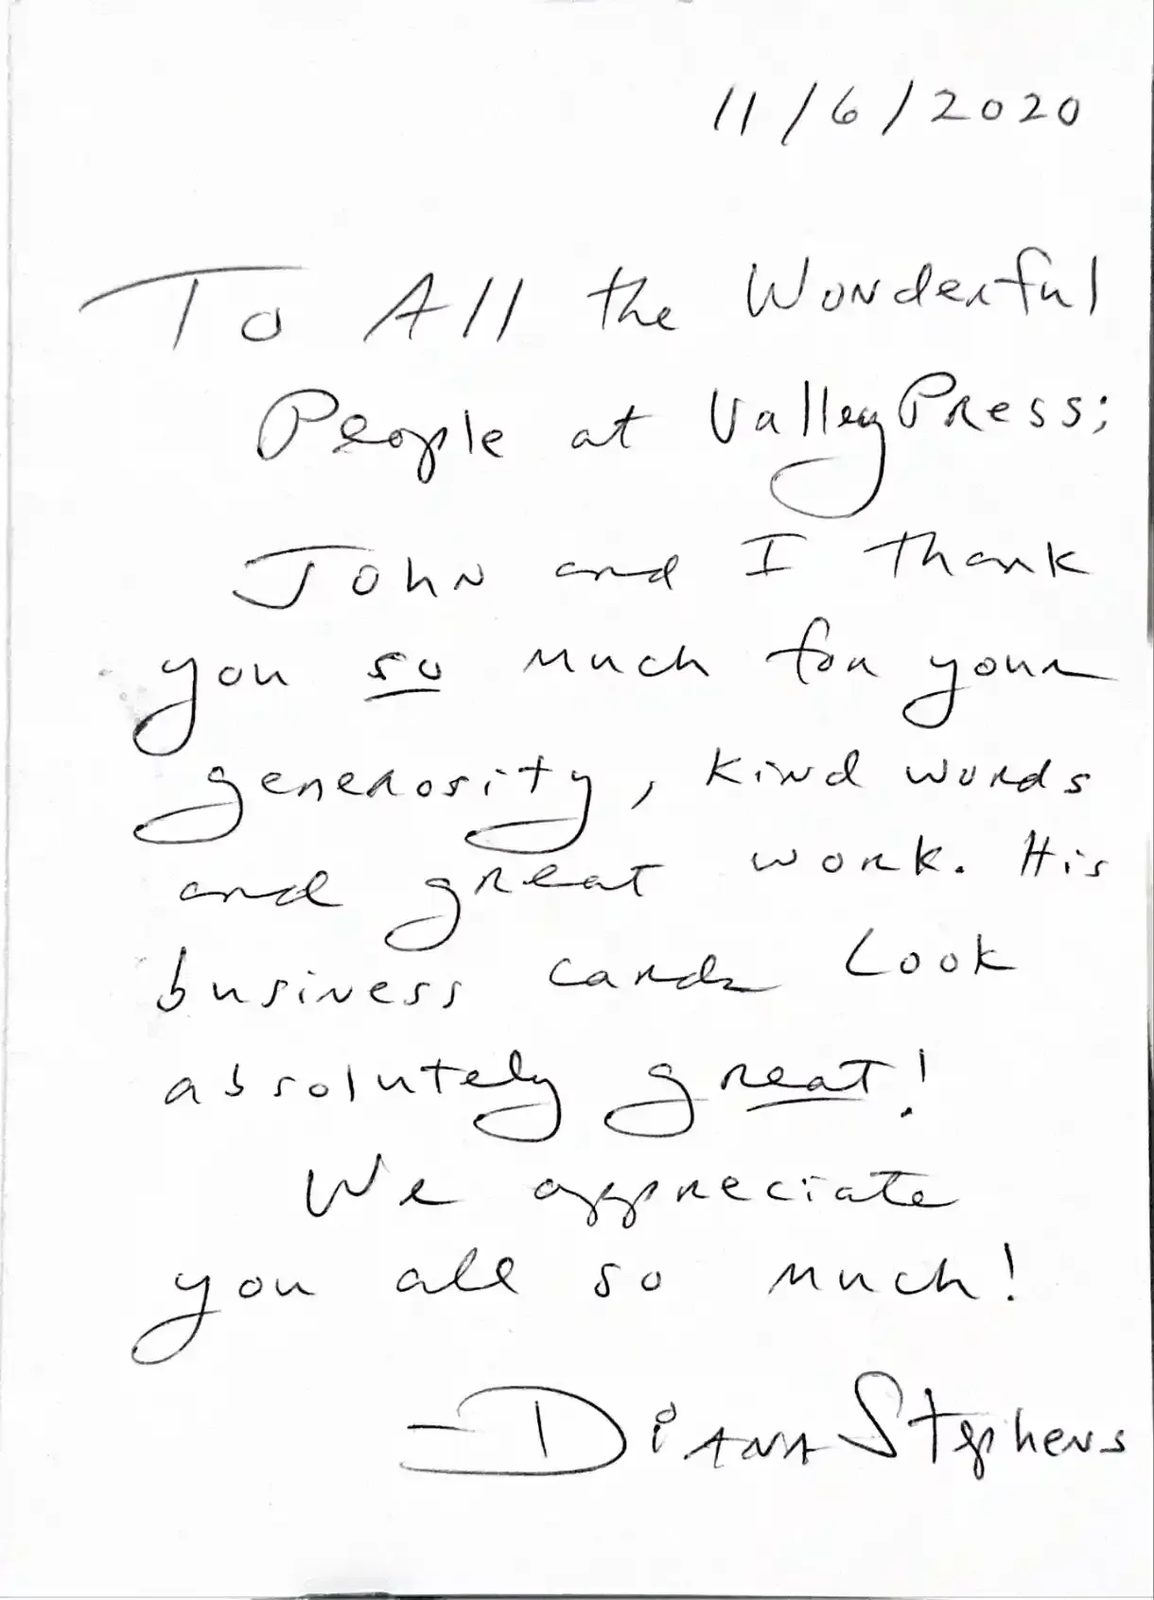 11/6/2020
To All the Wonderful
People at Valley Press;
John and I thank
you so much for your
generosity, kind words
and great work. His
business cards look
absolutely great!
We appreciate
you all so much!
- Diana Stephens